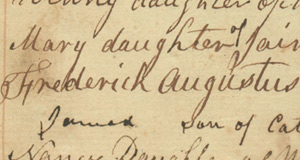 daughter of
Mary daughter of
Frederick Augustus
James son of Cat
Nancy Daught